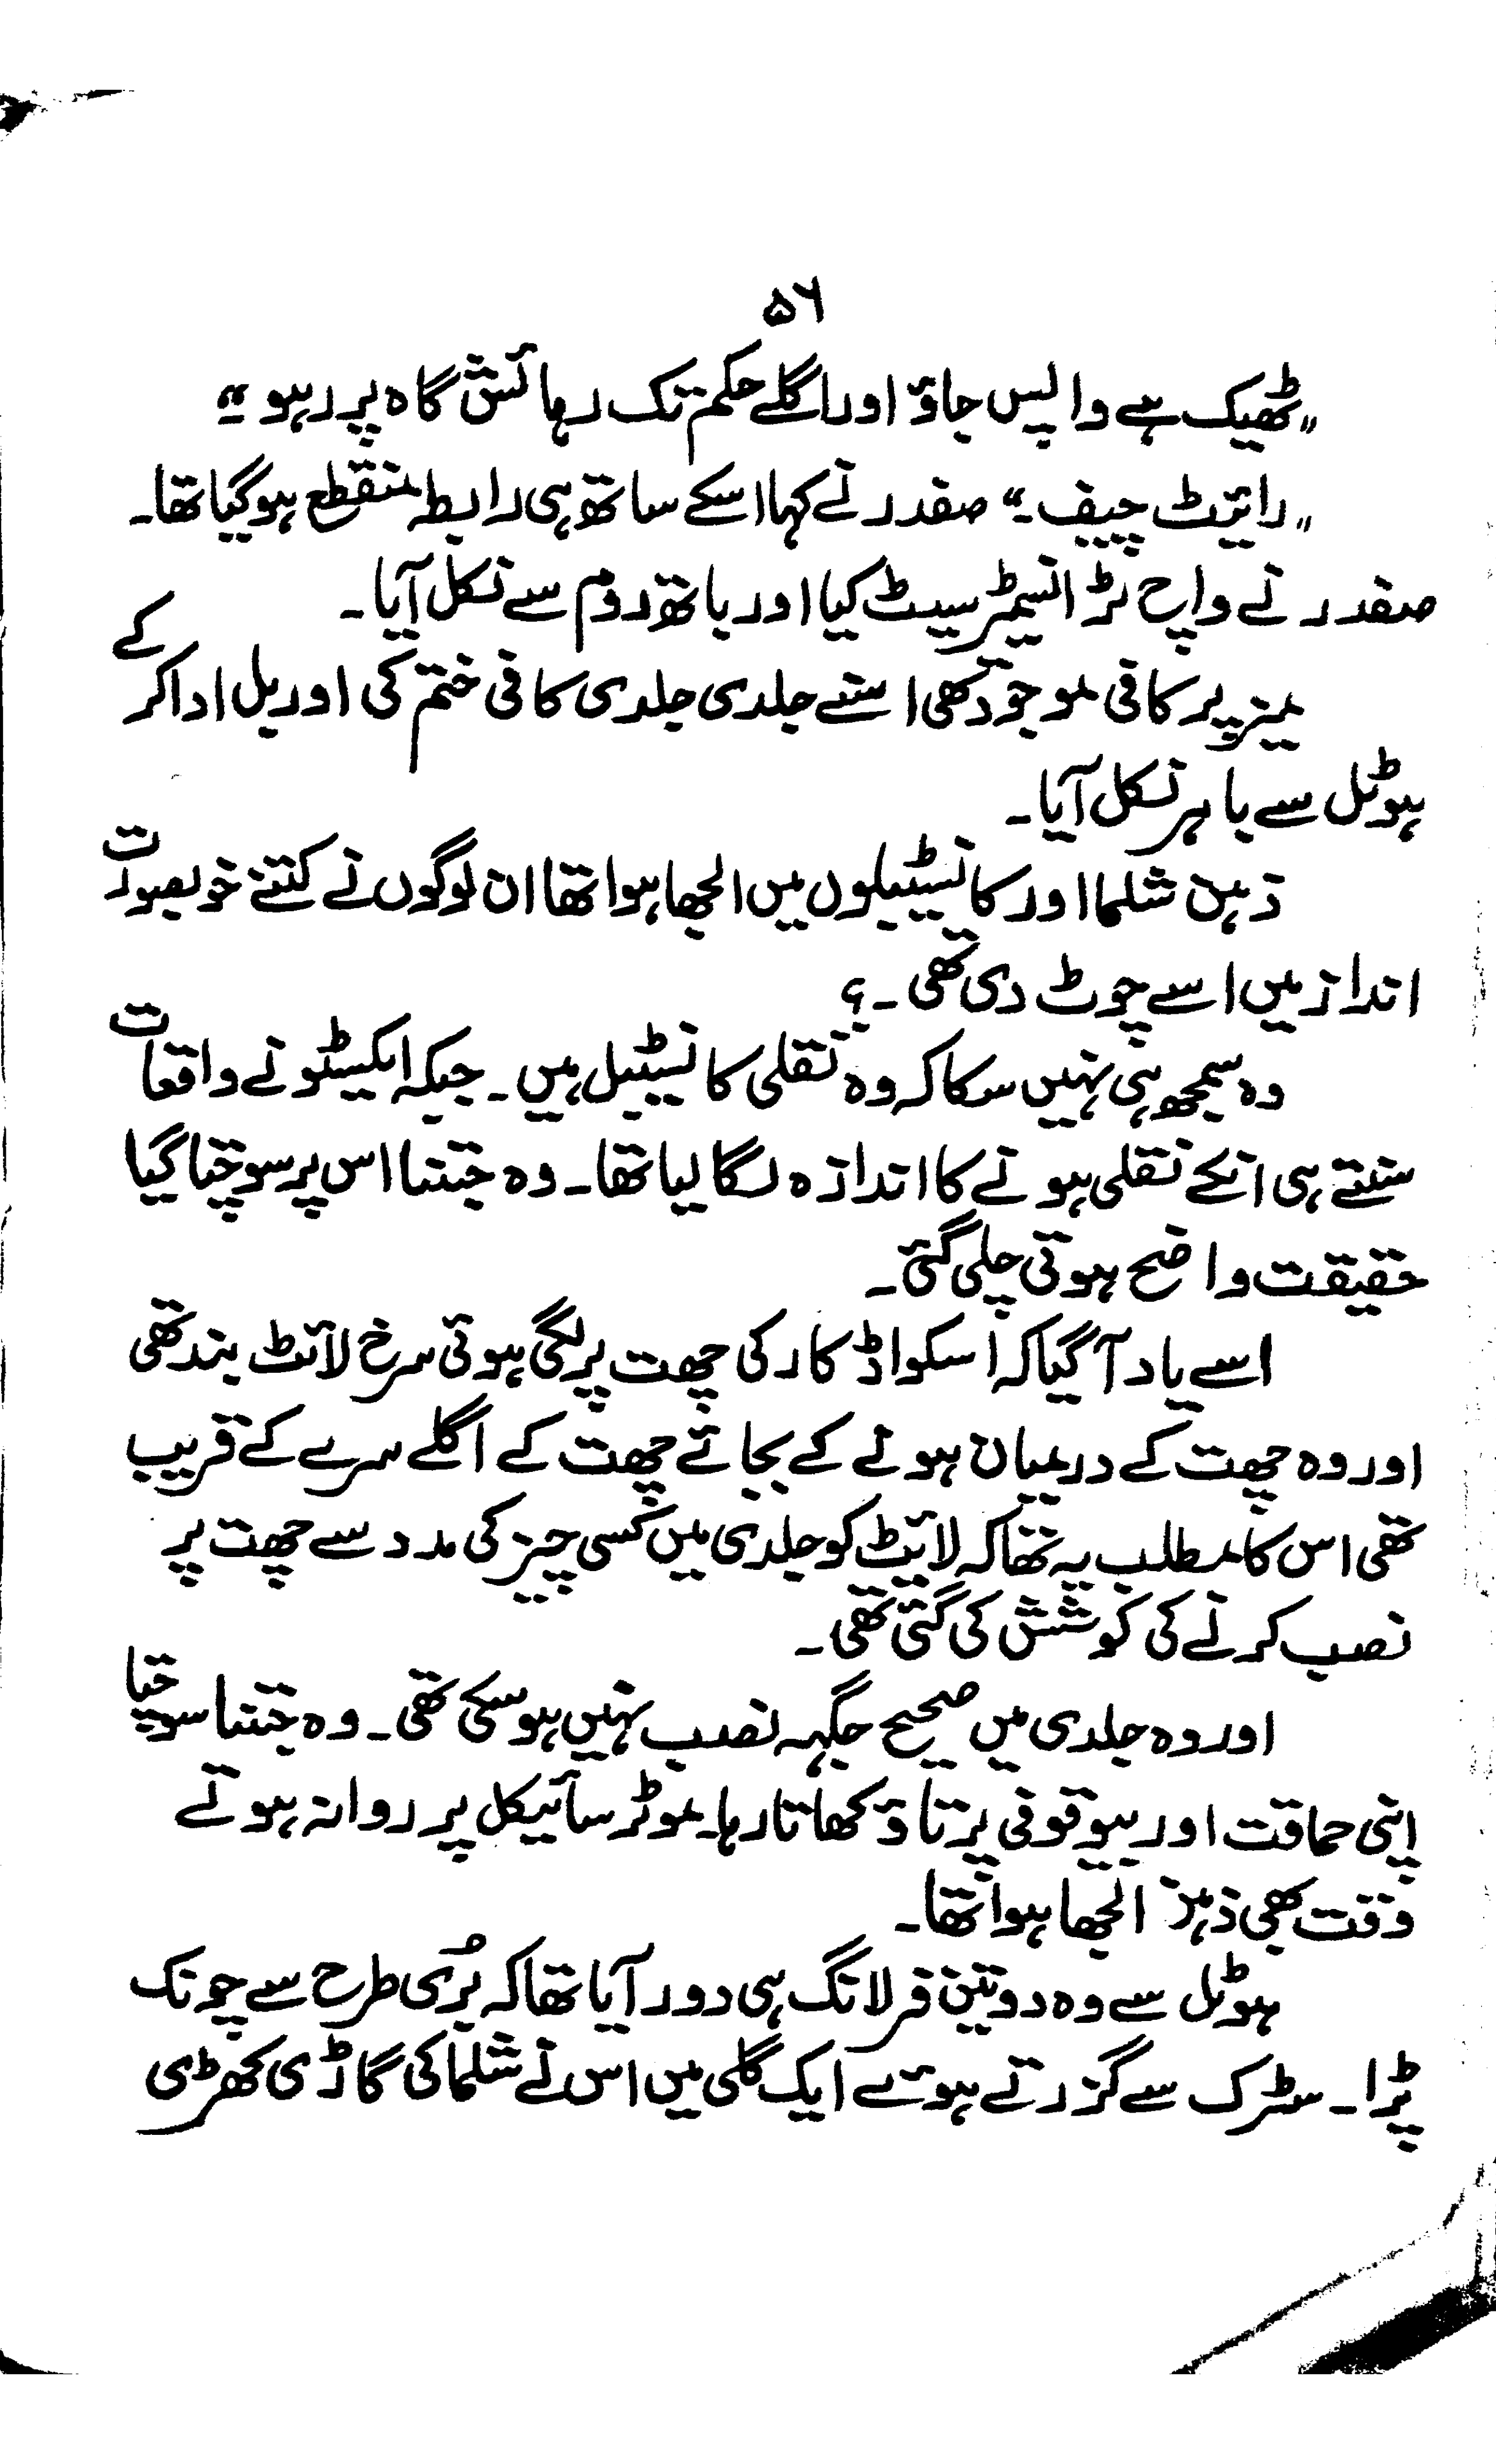 ۵۶
"ٹھیک ہے واپس جاؤ اور اگلے حکم تک رہائش گاہ پر رہو۔"
"رائیٹ چیف۔" صفدر نے کہا اسکے ساتھ ہی رابطہ منقطع ہو گیا تھا۔
صفدر نے واچ ٹرانسیمٹر سیٹ کیا اور باتھ روم سے نکل آیا۔
میز پر کافی موجود تھی اسنے جلدی جلدی کافی ختم کی اور بل ادا کر کے
ہوٹل سے باہر نکل آیا۔
ذہن شلما اور کانسٹیبلوں میں الجھا ہوا تھا ان لوگوں نے کتنے خوبصورت
انداز میں اسے چوٹ دی تھی۔؟
وہ سمجھ ہی نہیں سکا کہ وہ نقلی کانسٹیبل ہیں۔ جبکہ ایکسٹو نے واقعات
سنتے ہی انکے نقلی ہونے کا اندازہ لگا لیا تھا۔ وہ جتنا اس پر سوچتا گیا
حقیقت واضح ہوتی چلی گئی۔
اسے یاد آ گیا کہ اسکواڈ کار کی چھت پر لگی ہوئی سرخ لائٹ بند تھی
اور وہ چھت کے درمیان ہونے کے بجائے چھت کے اگلے سرے کے قریب
تھی اس کا مطلب یہ تھا کہ لائیٹ کو جلدی میں کسی چیز کی مدد سے چھت پر
نصب کرنے کی کوشش کی گئی تھی۔
اور وہ جلدی میں صحیح جگہہ نصب نہیں ہو سکی تھی۔ وہ جتنا سوچتا
اپنی حماقت اور بیوقوفی پر تاؤ کھاتا رہا۔ موٹر سائیکل پر روانہ ہوتے
وقت بھی ذہن الجھا ہوا تھا۔
ہوٹل سے وہ دو تین فرلانگ ہی دور آیا تھا کہ بُری طرح سے چونک
پڑا۔ سٹرک سے گزرتے ہوئے ایک گلی میں اس نے شلما کی گاڑی کھڑی